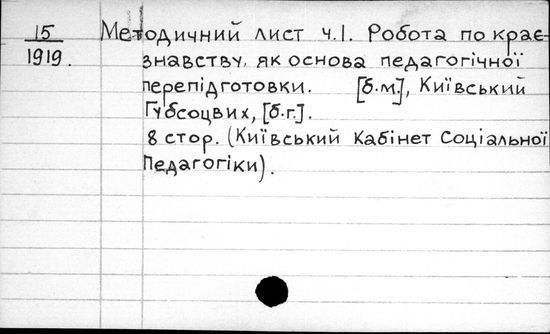 15 Методичний лист ч.1. Робота по крає-
1919. знавству, як основа педагогічної
перепідготовки. [б.м], Київський
Губсоцвих, [б.г].
8 стор. (Київський Кабінет Соціальної
Педагогіки).